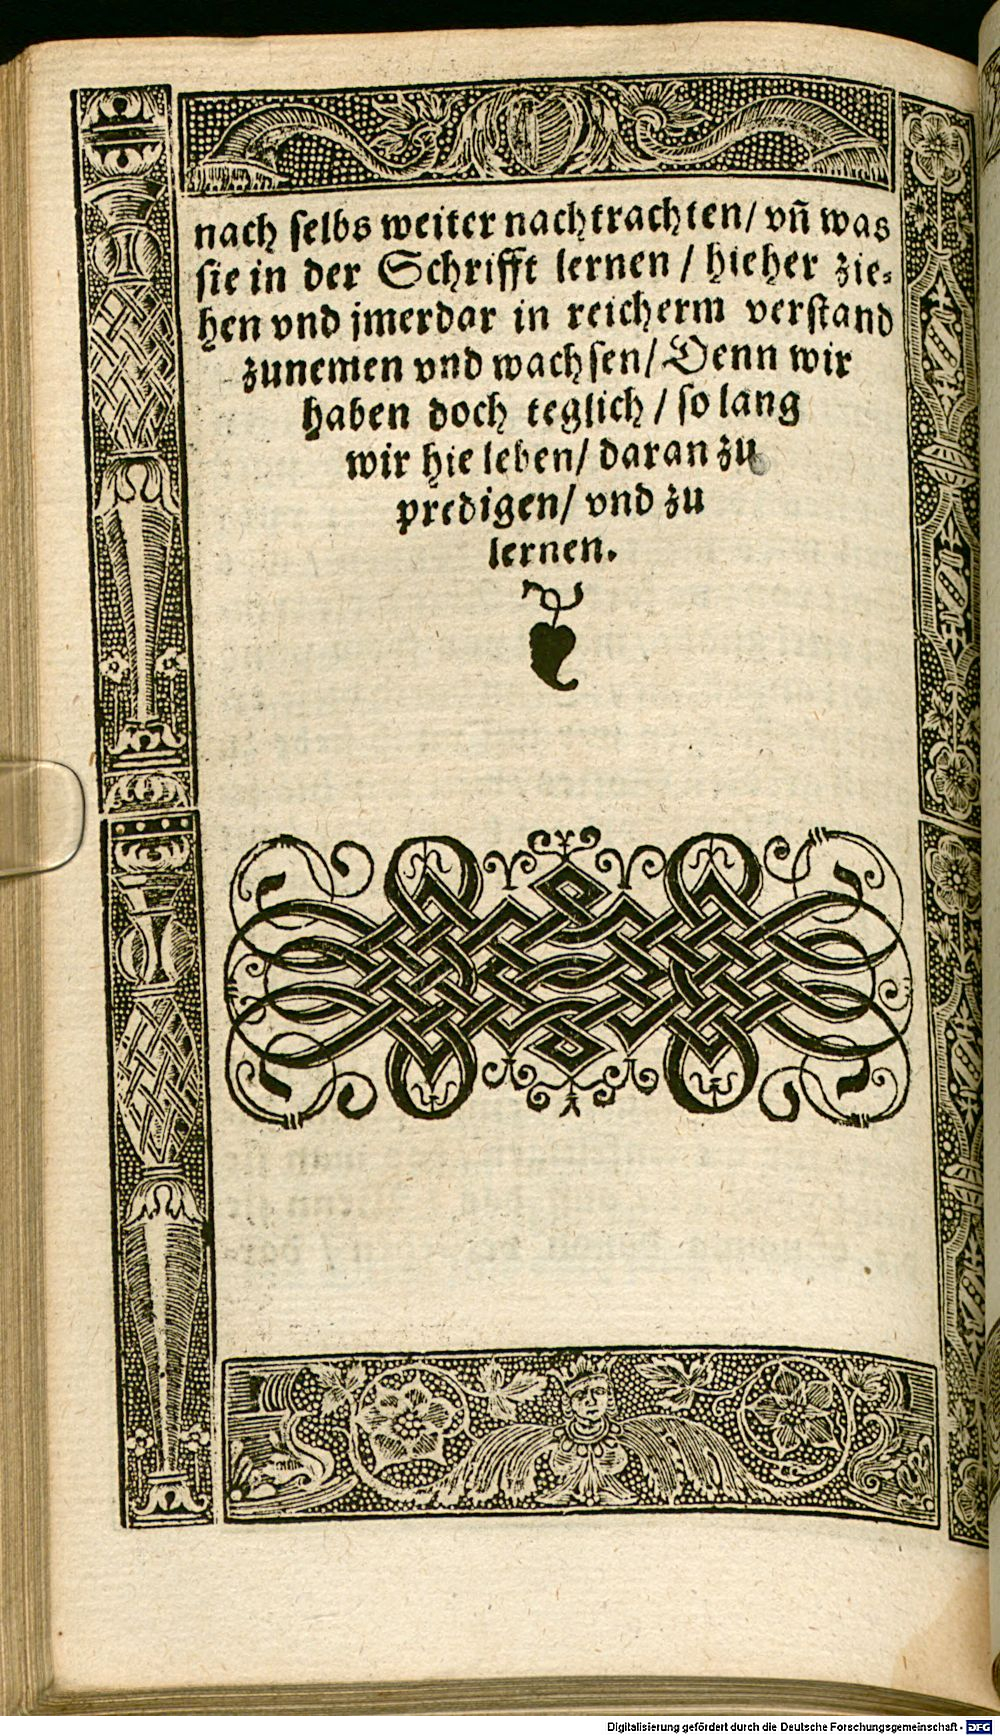 nach ſelbs weiter nachtrachten/ vñ was
ſie in der Schrifft lernen / hieher zie⸗
hen vnd jmerdar in reicherm verſtand
zunemen vnd wachſen/ Denn wir
haben doch teglich / ſo lang
wir hie leben/ daran zu
predigen/ vnd zu
lernen.
Digitalisierung gefördert durch die Deutsche Forschungsgemeinschaft - DFG